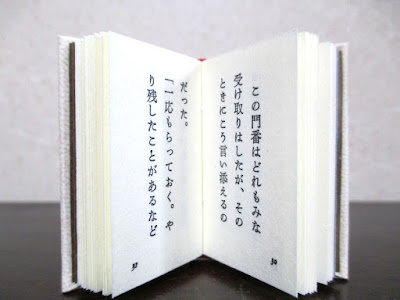 この門番はどれもみな
受け取りはしたが、その
ときにこう言い添えるの
30
だった。
「一応もらっておく。や
り残したことがあるなど
31